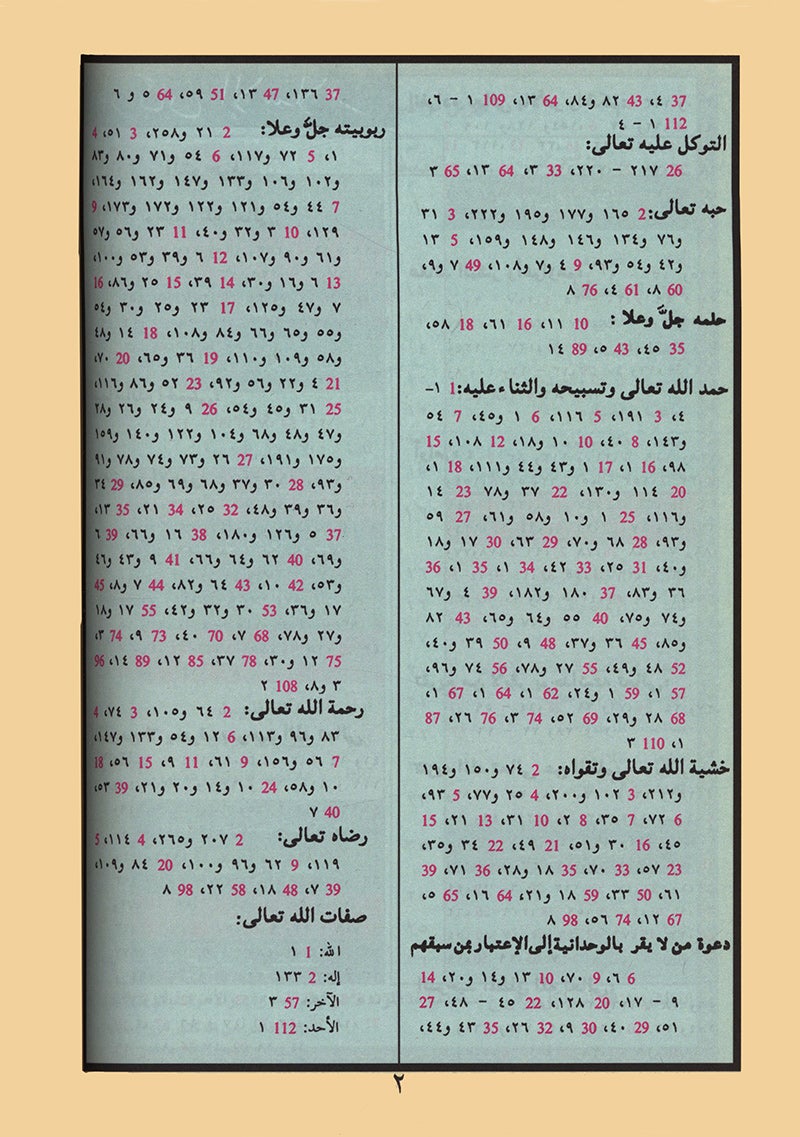 37 ٤، 43 ٨٢ و٨٤، 64 ١٣، 109 ١ – ٦،
112 ١ – ٤
التوكل عليه تعالى:
26 ٢١٧ – ٢٢٠، 33 ٣، 64 ١٣، 65 ٣
حبه تعالى: 2 ١٦٥ و١٧٧ و١٩٥ و٢٢٢، 3 ٣١
و٧٦ و١٣٤ و١٤٦ و١٤٨ و١٥٩، 5 ١٣
و٤٢ و٥٤ و٩٣، 9 ٤ و٧ و١٠٨، 49 ٧ و٩،
60 ٨، 61 ٤، 76 ٨
حلمه جلّ وعلا : 10 ١١، 16 ٦١، 18 ٥٨،
35 ٤٥، 43 ٥، 89 ١٤
حمد الله تعالى وتسبيحه والثناء عليه: 1 ١–
٤، 3 ١٩١، 5 ١١٦، 6 ١ و٤٥، 7 ٥٤
و١٤٣، 8 ٤٠، 10 ١٠ و١٨، 12 ١٠٨، 15
٩٨، 16 ١، 17 ١ و٤٣ و٤٤ و١١١، 18 ١،
20 ١١٤ و١٣٠، 22 ٣٧ و٧٨ 23 ١٤
و١١٦، 25 ١ و١٠ و٥٨ و٦١، 27 ٥٩
و٩٣، 28 ٦٨ و٧٠، 29 ٦٣، 30 ١٧ و١٨
و٤٠، 31 ٢٥، 33 ٤٢، 34 ١، 35 ١، 36
٣٦ و٨٣، 37 ١٨٠ و١٨٢، 39 ٤ و٦٧
و٧٤ و٧٥، 40 ٥٥ و٦٤ و٦٥، 43 ٨٢
و٨٥، 45 ٣٦ و٣٧، 48 ٩، 50 ٣٩ و٤٠،
52 ٤٨ و٤٩، 55 ٢٧ و٧٨، 56 ٧٤ و٩٦،
57 ١، 59 ١ و٢٤، 62 ١، 64 ١، 67 ١،
68 ٢٨ و٢٩، 69 ٥٢، 74 ٣، 76 ٢٦، 87
١، 110 ٣
خشية الله تعالى وتقواه: 2 ٧٤ و١٥٠ و١٩٤
و٢١٢، 3 ١٠٢ و٢٠٠، 4 ٢٥ و٧٧، 5 ٩٣،
6 ٧٢، 7 ٣٥، 8 ٢، 10 ٣١، 13 ٢١، 15
٤٥، 16 ٣٠ و٥١، 21 ٤٩، 22 ٣٤ و٣٥،
23 ٥٧، 33 ٧٠، 35 ١٨ و٢٨، 36 ٧١، 39
٦١، 50 ٣٣، 59 ١٨ و٢١، 64 ١٦، 65 ٥،
67 ١٢، 74 ٥٦، 98 ٨
دعوة من لا يقر بالوحدانية إلى الإعتبار بمن سبقهم
6 ٦، 9 ٧٠، 10 ١٣ و١٤ و٢٠، 14
٩ – ١٧، 20 ١٢٨، 22 ٤٥ – ٤٨، 27
٥١، 29 ٤٠، 30 ٩، 32 ٢٦، 35 ٤٣ و٤٤،
37 ١٣٦، 47 ١٣، 51 ٥٩، 64 ٥ و ٦
ربوبيته جلّ وعلا: 2 ٢١ و٢٥٨، 3 ٥١، 4
١، 5 ٧٢ و١١٧، 6 ٥٤ و٧١ و٨٠ و٨٣
و١٠٢ و١٠٦ و١٣٣ و١٤٧ و١٦٢ و١٦٤،
7 ٤٤ و٥٤ و١٢١ و١٢٢ و١٧٢ و١٧٣، 9
١٢٩، 10 ٣ و٣٢ و٤٠، 11 ٢٣ و٥٦ و٥٧
و٦١ و٩٠ و١٠٧، 12 ٦ و٣٩ و٥٣ و١٠٠،
13 ٦ و١٦ و٣٠، 14 ٣٩، 15 ٢٥ و٨٦، 16
٧ و٤٧ و١٢٥، 17 ٢٣ و٢٥ و٣٠ و٥٤
و٥٥ و٦٥ و٦٦ و٨٤ و١٠٨، 18 ١٤ و٤٨
و٥٨ و١٠٩ و١١٠، 19 ٣٦ و٦٥، 20 ٧٠،
21 ٤ و٢٢ و٥٦ و٩٢، 23 ٥٢ و٨٦ و١١٦،
25 ٣١ و٤٥ و٥٤، 26 ٩ و٢٤ و٢٦ و٢٨
و٤٧ و٤٨ و٦٨ و١٠٤ و١٢٢ و١٤٠ و١٥٩
و١٧٥ و١٩١، 27 ٢٦ و٧٣ و٧٤ و٧٨ و٩١
و٩٣، 28 ٣٠ و٣٧ و٦٨ و٦٩ و٨٥، 29 ٣٤
و٣٦ و٣٩ و٤٨، 32 ٢٥، 34 ٢١، 35 ١٣،
37 ٥ و١٢٦ و١٨٠، 38 ١٦ و٦٦، 39 ٦
و٦٩، 40 ٦٢ و٦٤ و٦٦، 41 ٩ و٤٣ و٤٦
و٥٣، 42 ١٠، 43 ٦٤ و٨٢، 44 ٧ و٨، 45
١٧ و٣٦، 53 ٣٠ و٣٢ و٤٢، 55 ١٧ و١٨
و٢٧ و٧٨، 68 ٧، 70 ٤٠، 73 ٩، 74 ٣،
75 ١٢ و٣٠، 78 ٣٧، 85 ١٢، 89 ١٤، 96
٣ و٨، 108 ٢
رحمة الله تعالى: 2 ٦٤ و١٠٥، 3 ٧٤، 4
٨٣ و٩٦ و١١٣، 6 ١٢ و٥٤ و١٣٣ و١٤٧،
7 ٥٦ و١٥٦، 9 ٦١، 11 ٩، 15 ٥٦، 18
١٠ و٥٨، 24 ١٠ و١٤ و٢٠ و٢١، 39 ٥٣،
40 ٧
رضاه تعالى: 2 ٢٠٧ و٢٦٥، 4 ١١٤، 5
١١٩، 9 ٦٢ و٩٦ و١٠٠، 20 ٨٤ و١٠٩،
39 ٧، 48 ١٨، 58 ٢٢، 98 ٨
صفات الله تعالى:
الله: 1 ١
إله: 2 ١٣٣
الآخر: 57 ٣
الأحد: 112 ١
٢